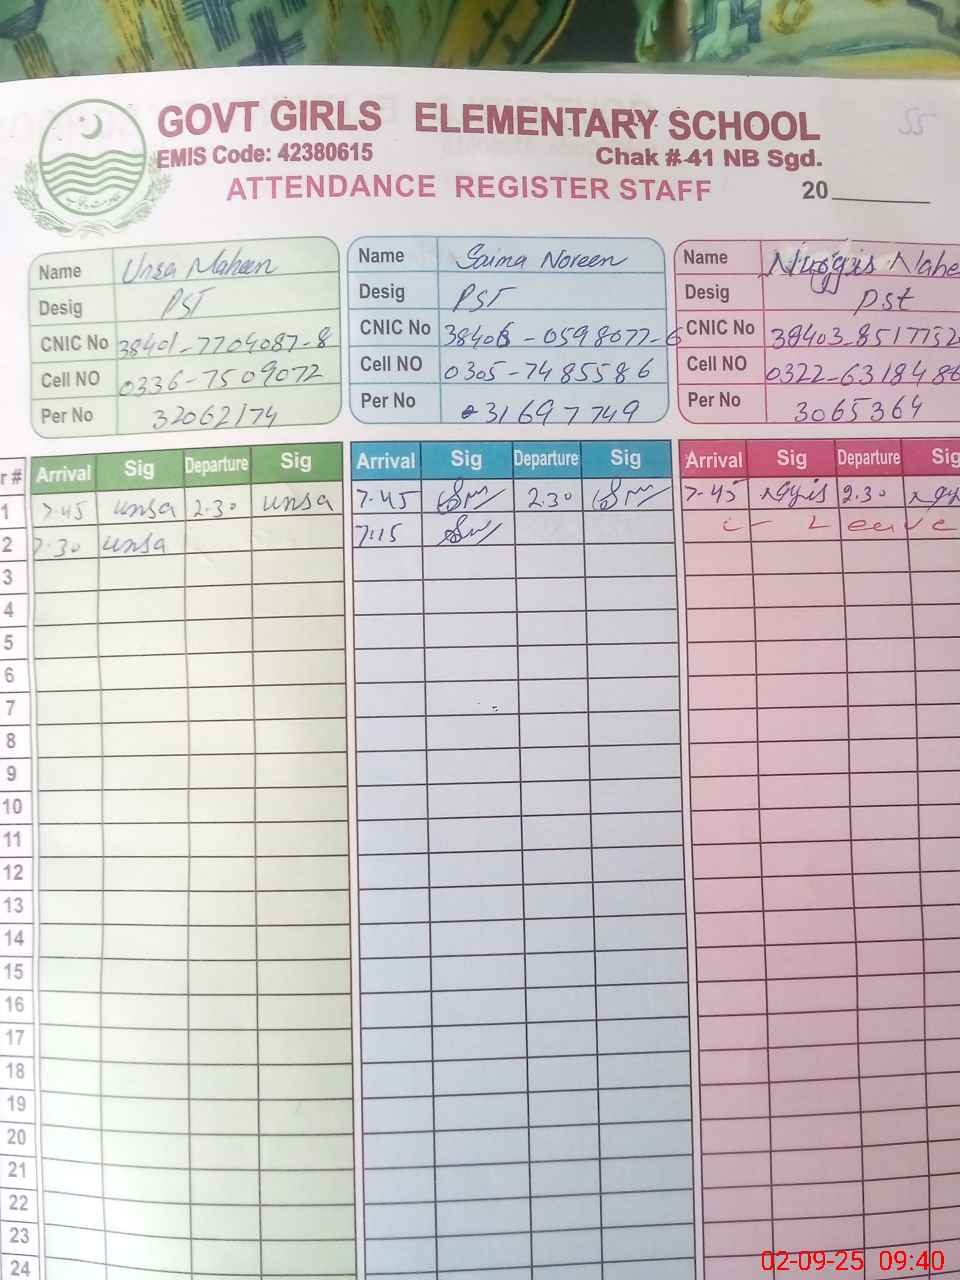 GOVT GIRLS ELEMENTARY SCHOOL
55
EMIS Code: 42380615
Chak # 41 NB Sgd.
ATTENDANCE REGISTER STAFF
20
Name Unsa Maheen
Desig PST
CNIC No 38401-7704087-8
Cell NO 0336-7509072
Per No 32062174
Name Saima Noreen
Desig PST
CNIC No 38406-0598077-6
Cell NO 0305-7485586
Per No 31697749
Name Nirggis Nahe
Desig Pst
CNIC No 38403-8517752
Cell NO 0322-6318486
Per No 3065364
r # Arrival Sig Departure Sig Arrival Sig Departure Sig Arrival Sig Departure Sig
1 7.45 unsa 2.30 unsa 7.45 2.30 7.45 2.30
2 7.30 unsa 7:15 c- Leave
3
4
5
6
7
8
9
10
11
12
13
14
15
16
17
18
19
20
21
22
23
24
02-09-25 09:40